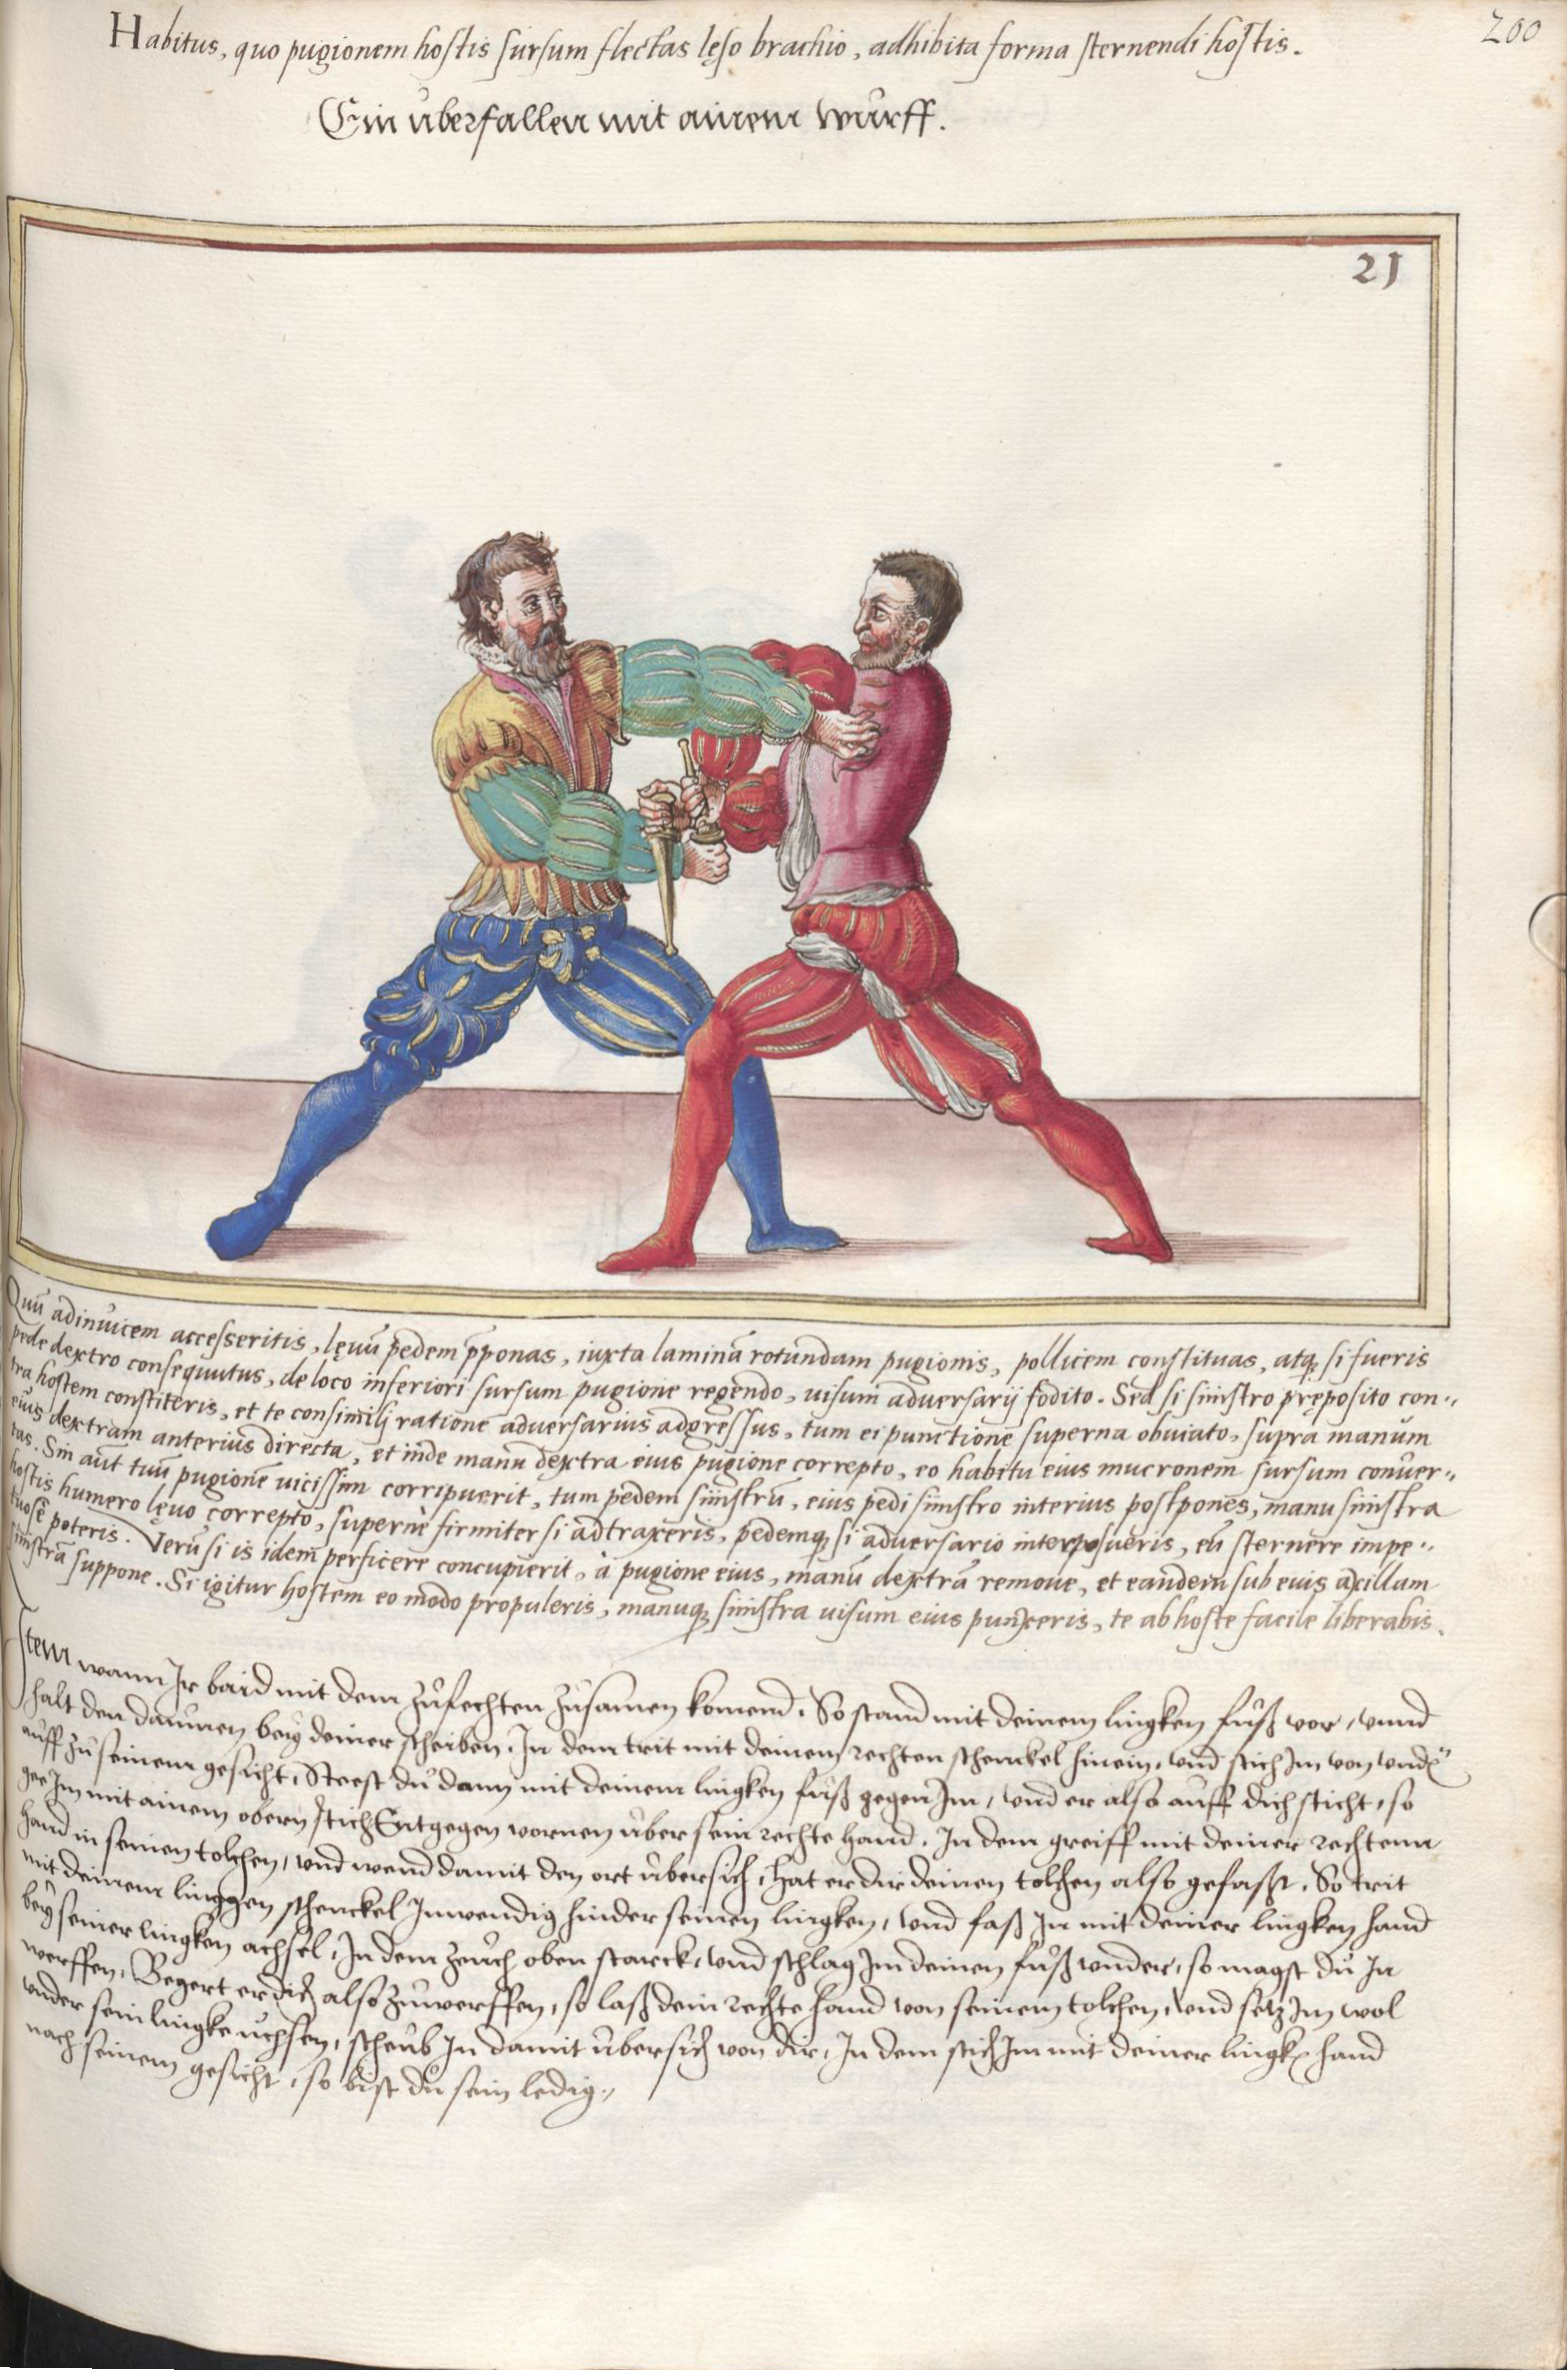 Habitus, quo pugionem hostis sursum flectas lęso brachio, adhibita forma sternendi hostis.
200
Ein überfallen mit ainem wurff.
21
Quū adinuicem accesseritis, lęuū pedem p̄ponas, iuxta laminā rotundam pugionis, pollicem constituas, atq; si fueris
pede dextro consequutus, de loco inferiori sursum pugione regendo, uisum aduersarij fodito. Sed si sinistro pręposito con-
tra hostem constiteris, et te consimili ratione aduersarius adgressus, tum ei punctione superna obuiato, supra manum
eius dextram anterius directa, et inde manu dextra eius pugione correpto, eo habitu eius mucronem sursum conuer-
tas. Sin aūt tuū pugionē uicissim corripuerit, tum pedem sinistrū, eius pedi sinistro interius postpones, manu sinistra
hostis humero lęuo correpto, supernè firmiter si adtraxeris, pedemq; si aduersario interposueris, eū sternere impe-
tuosè poteris. Verū si is idem perficere concupierit, à pugione eius, manū dextrā remoue, et eandem sub eius axillam
sinistrā suppone. Si igitur hostem eo modo propuleris, manuq; sinistra uisum eius punxeris, te ab hoste facile liberabis.
Item wann Ir baid mit dem zufechten zusamen komend, So stand mit deinem lingken fuß vor, vnnd
halt den daumen bey deiner scheiben, In dem trit mit deinem rechten schenckel hinein, vnd stich Im von vnd
auff zu seinem gesicht, Steest du dann mit deinem lingken fuß gegen Im, vnd er also auff dich sticht, so
gee Im mit ainem obern stich Entgegen vornen über sein rechte hand, In dem greiff mit deiner rechtenn
hand in seinen tolchen, vnd wend damit den ort übersich, hat er dir deinen tolchen also gefasst, So trit
mit deinem linggen schenckel Inwendig hinder seinen lingken, vnd faß In mit deiner lingken hand
bey seiner lingken achsel, In dem zeuch oben starck, vnd schlag Im deinen fuß vnder, so magst du In
werffen, Begert er dich also zuwerffen, so laß dein rechte hand von seinem tolchen, vnd setz Im wol
vnder sein lingke uchsen, scheub In damit übersich von dir, In dem stich Im mit deiner lingk hand
nach seinem gesicht, so bist du sein ledig.